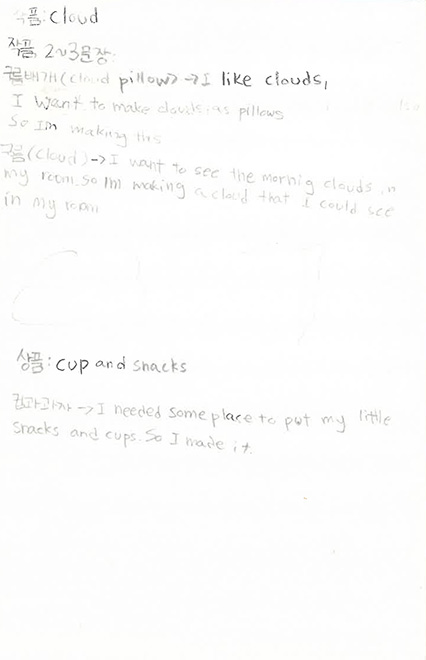 작품: Cloud
작품 2~3문장:
구름베개(cloud pillow) → I like clouds,
I want to make clouds as pillows
So Im making this
구름(Cloud) → I want to see the mornig clouds in
my room. So Im making a cloud that I could see
in my room
상품: cup and snacks
컵과과자 → I needed some place to put my little
snacks and cups. So I made it.